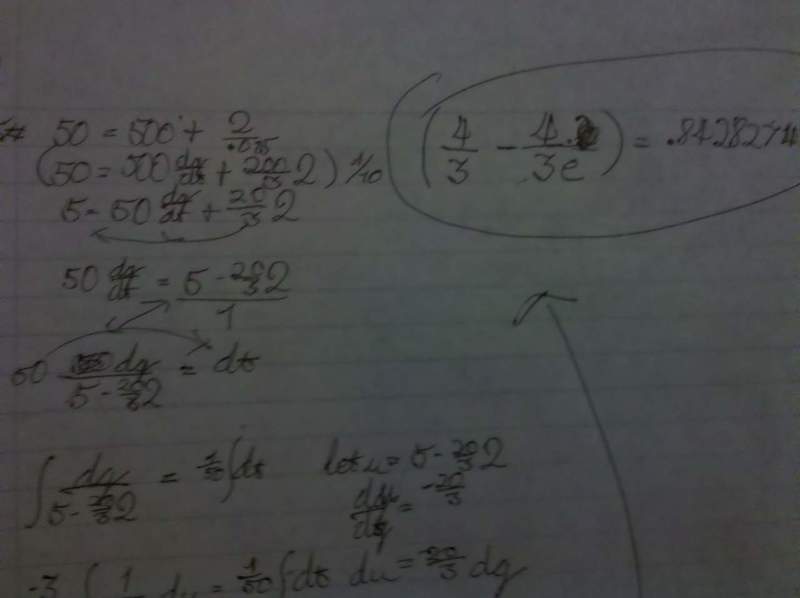 50 = 500 + 2/.015
(50 = 500 dq/dt + 200/3 2) 1/10
5 = 50 dq/dt + 20/3 2
50 dq/dt = 5 - 20/3 2 / 1
50 dq / 5 - 20/3 2 = dt
∫ dq / 5 - 20/3 2 = 1/50 ∫ dt let u = 5 - 20/3 2
du/dq = -20/3
-3 ∫ 1 du = 1/50 ∫ dt du = -20/3 dq
(4/3 - 4/3e) =